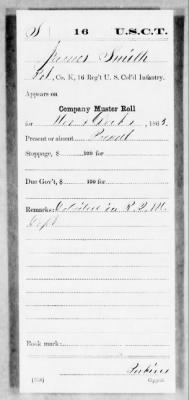 S 16 U.S.C.T.
James Smith
Pvt., Co. K, 16 Reg't U. S. Col'd Infantry.
Appears on
Company Muster Roll
for Nov & Dec, 1863.
Present or absent Present
Stoppage, $ 100 for
Due Gov't, $ 100 for
Remarks: in Q. M.
Dept
Book mark:
Perkins
(358) Copyist.